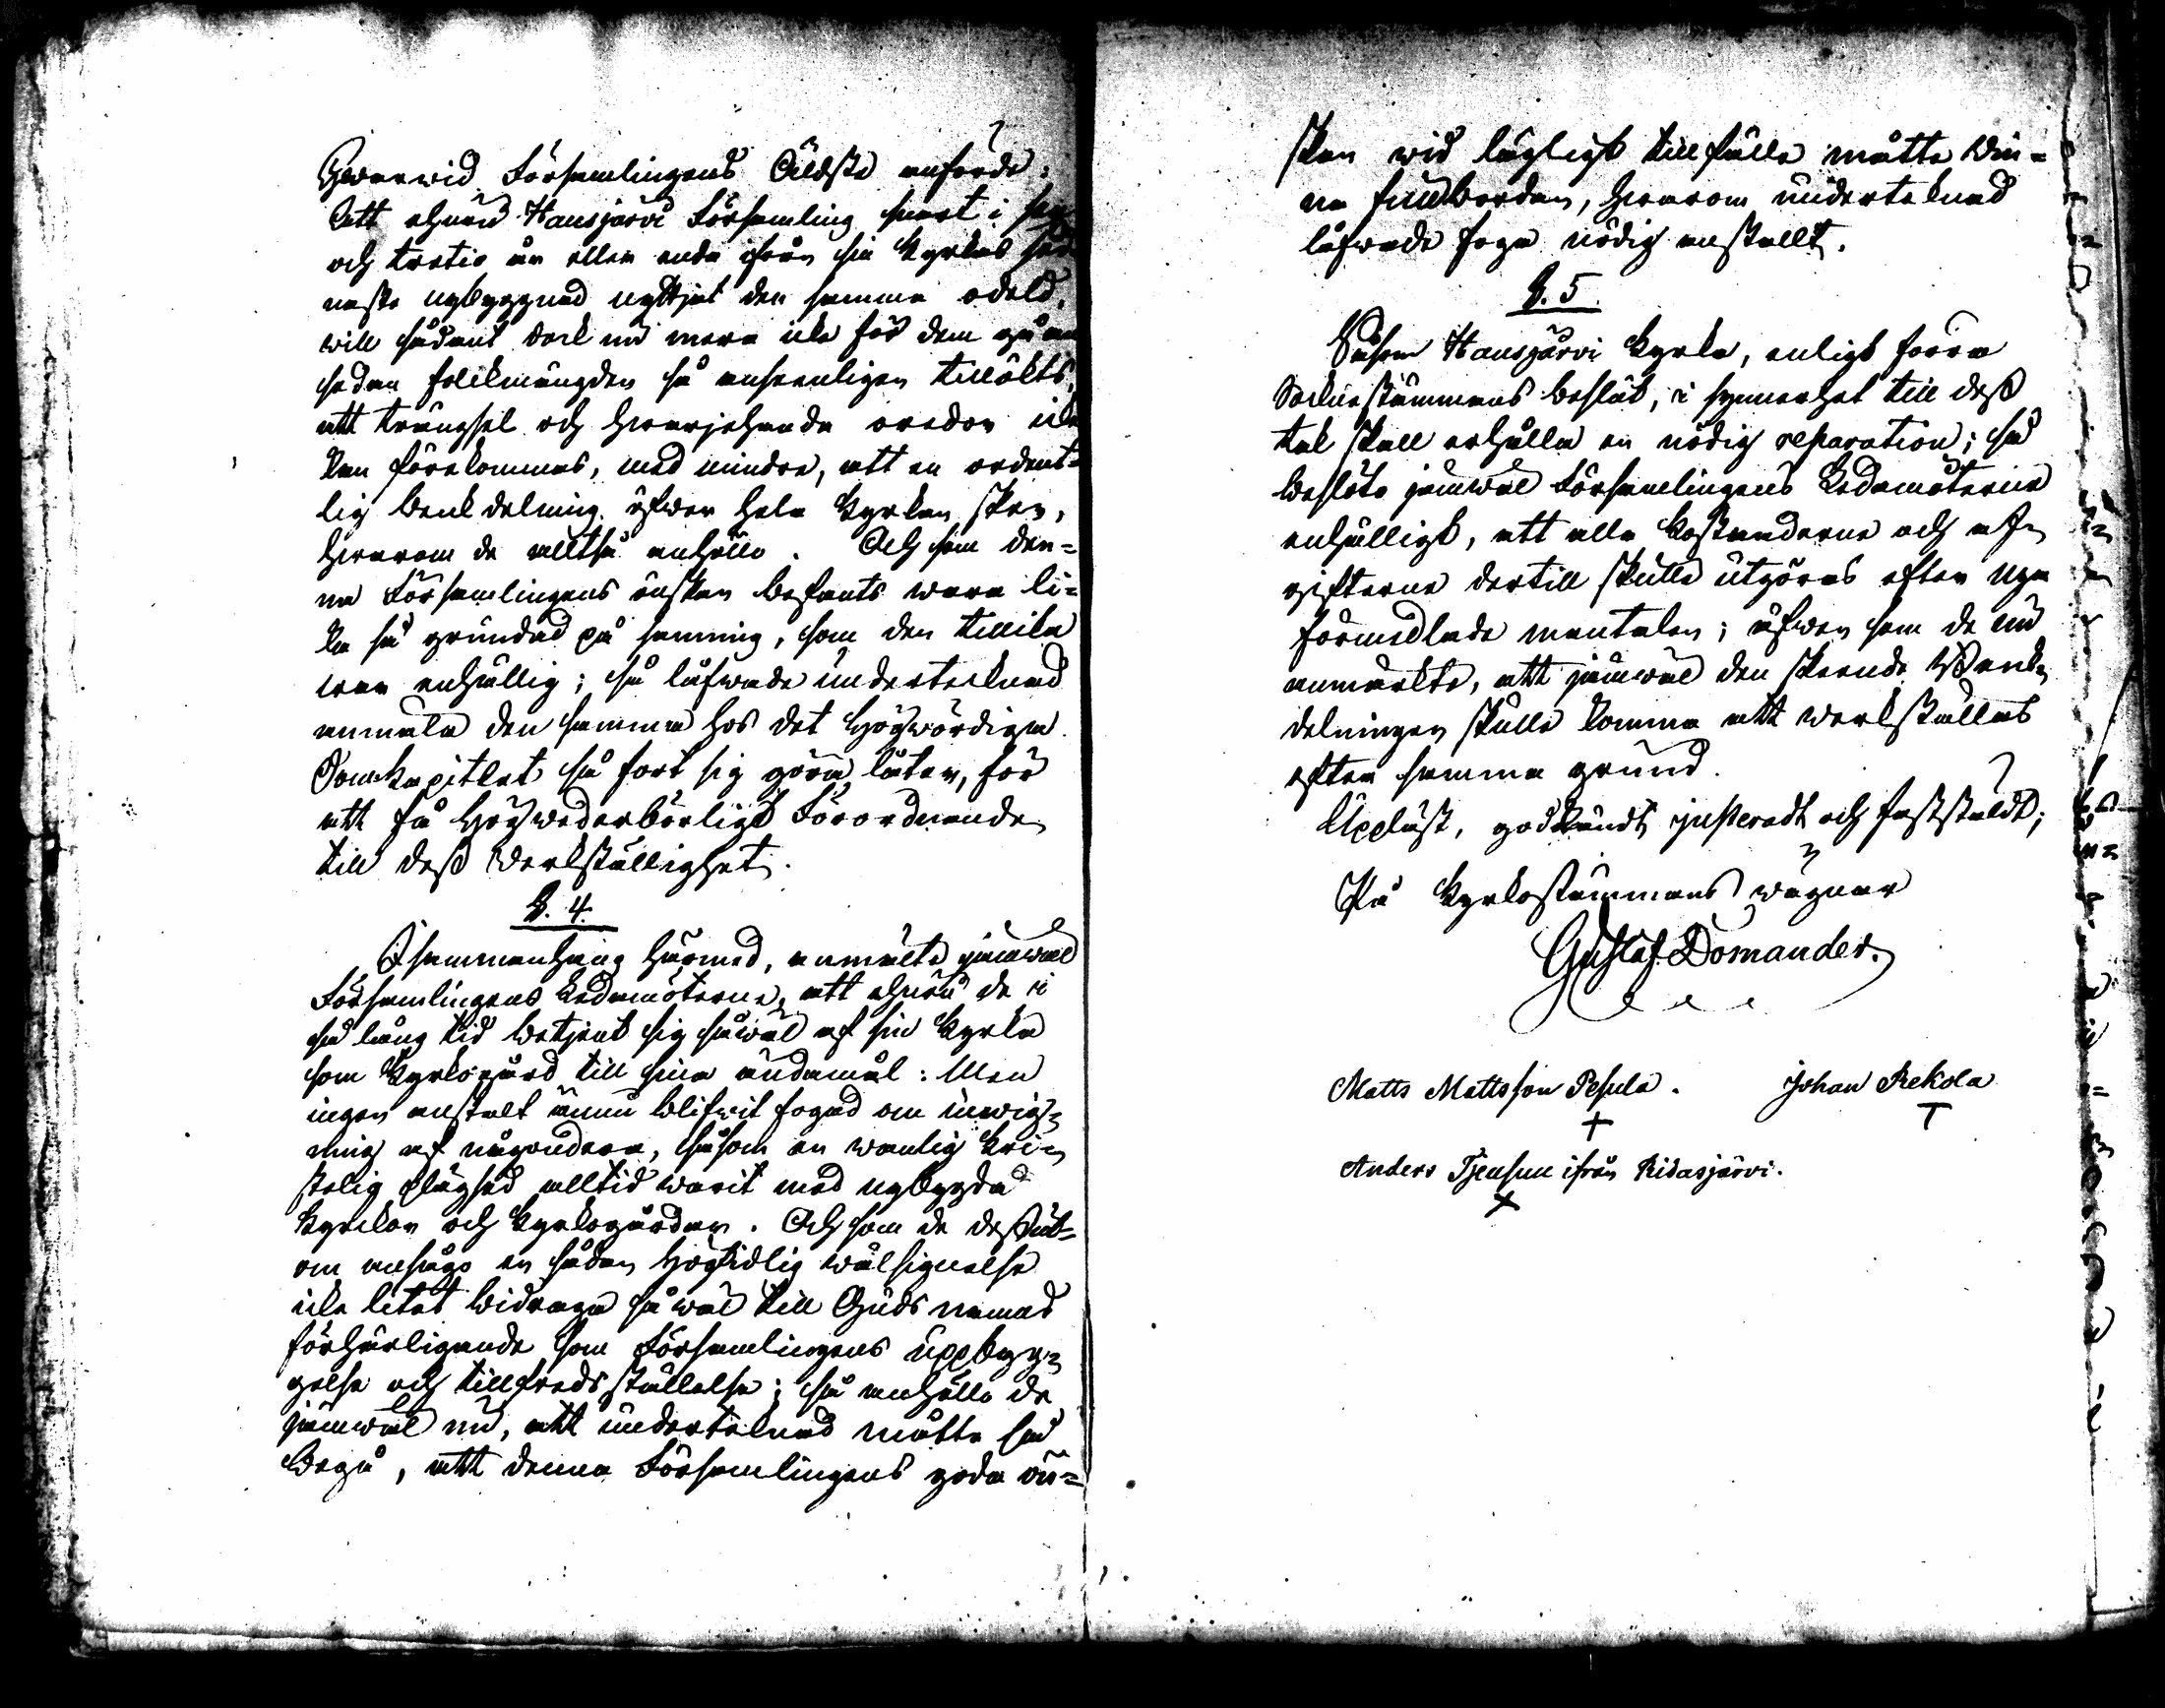 Hwarwid Församlingens Äldste anförde:
att ehuru Hausjärvi Församling snart i sex
och tretio år eller ända ifrån sin Kyrkas
naste nybyggnad nyttjat den samma odeld,
will sådant dock nu mera icke för dem gå an
sedan folkmängden så ansenligen tillökts,
att trängsel och hwarjehanda oredor icke
kan förekommas, med mindre, att en ordent-
lig bänkdelning öfwer hela Kyrkan sker,
hwarom de alltså anhöllo. Och som den-
na Församlingens önskan befants wara li-
ka så grundad på sanning, som den tillika
war enhällig; så låfwade undertecknad
anmäla den samma hos det Högwördiga
Domkapitlet så fort sig göra låter, för
att få Högwederbörligt Förordnande
till dess Werkställighet.
§. 4.
I sammanhang härmed, anmälte jämwäl
Församlingens Ledamöterne, att ehuru de i
så lång tid betjent sig såwäl af sin Kyrka
som Kyrkogård till sina ändamål: Men
ingen anstalt ännu blifwit fogad om inwig-
ning af någondera, såsom en wanlig Kri-
stelig plägsed alltid warit med nybyggda
Kyrkor och Kyrkogårdar. Och som de dessut-
om ansågo en sådan Högtidlig wälsignelse
icke litet bidraga såwäl till Guds namns
förhärligande som Församlingens uppbyg-
gelse och tillfredsställelse; så anhöllo de
jämwäl nu, att undertecknad måtte så
begå, att denna Församlingens goda ön-
skan wid lägligt tillfälle måtte win-
na fullbordan, hwarom undertecknad
låfwade foga nödig anstallt.
§. 5.
Såsom Hausjärvi Kyrka, enligt förra
Sockenstämmans beslut, i synnerhet till dess
tak skall erhålla en nödig reparation; så
beslöto jämwäl Församlingens Ledamöterne
enhälligt, att alla kostnaderne och af-
gifterne dertill skulle utgöras efter nya
förmedlade mantalen; äfwen som de nu
anmärkte, att jämwäl den skeende Bänk-
delningen skulle komma att werkställas
efter samma grund.
Uppläst, godkändt, justeradt och fastställdt;
På Kyrkostämmans wägnar
Gustaf Domander.
Matts Mattsson Pesula. Johan Rekola
Anders Tjensuu ifrån Ridasjärvi.